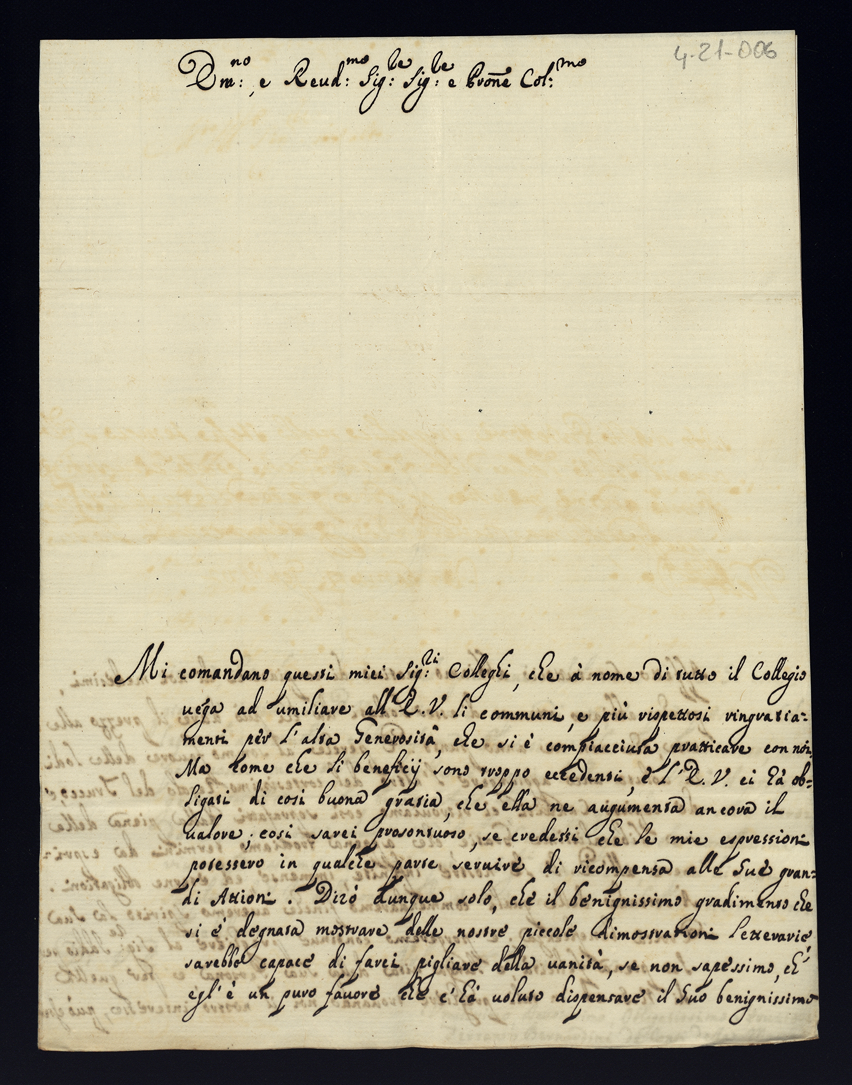 4-21-006
Dm:no, e Reud:mo Sig:re Sig:re e Prone Col:mo
Mi comandano questi miei Sig:ri Colleghi, che à nome di tutto il Collegio
uega ad umiliare all' V. li communi, e più rispettosi ringratia-
menti pèr l'alta Generosità, che si è compiacciuta pratticare con noi,
Ma come che li beneficij sono troppo eccedenti, e l' V. ci hà ob-
ligati di cosi buona gratia, che ella ne augumenta ancora il
ualore; cosi sarei prosontuoso, se credessi che le mie espressioni
potessero in qualche parte seruire di ricompensa alle Sue gran-
di Attioni. Dirò dunque solo, che il benignissimo gradimento che
si è degnata mostrare delle nostre piccole dimostrationi letterarie
sarebbe capace di farci pigliare della uanità, se non sapessimo, ch'
egl'è un puro fauore che c'hà voluto dispensare il Suo benignissimo